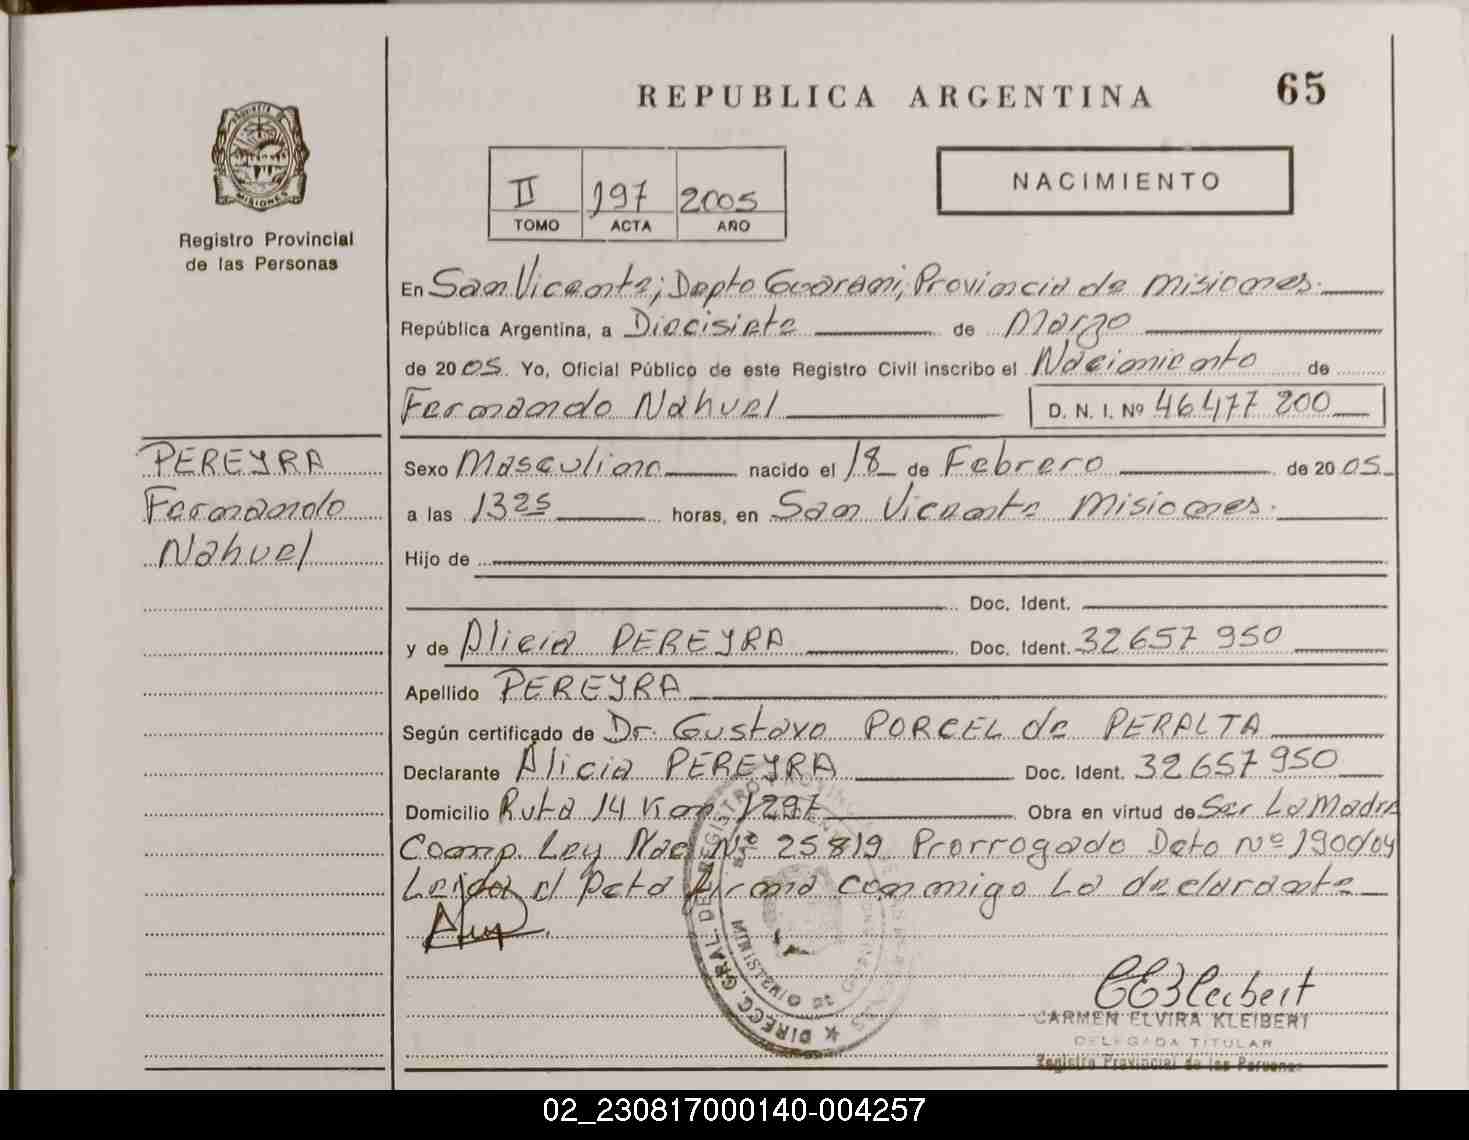 REPUBLICA ARGENTINA
65
II 197 2005
TOMO ACTA AÑO
NACIMIENTO
MISIONES
Registro Provincial
de las Personas
En San Vicente; Depto Guarani, Provincia de Misiones.
República Argentina, a Diecisiete de Marzo
de 2005. Yo, Oficial Público de este Registro Civil inscribo el Nacimiento de
Fernando Nahuel D. N. I. Nº 46.477 200
PEREYRA
Fernando
Nahuel
Sexo Masculino nacido el 18 de Febrero de 2005
a las 13 25 horas, en San Vicente Misiones.
Hijo de
Doc. Ident.
y de Alicia PEREYRA Doc. Ident. 32 657 950
Apellido PEREYRA
Según certificado de Dr. Gustavo PORCEL de PERALTA
Declarante Alicia PEREYRA Doc. Ident. 32 657 950
Domicilio Ruta 14 Km 1297 Obra en virtud de Ser La Madre
Comp. Ley Nac Nº 25819 Prorrogado Dcto Nº 1900/04
Leida el Acta firma conmigo La declarante
DIRECC. GRAL. DE REGISTRO
MINISTERIO DE
CEKleibert
CARMEN ELVIRA KLEIBERT
DELEGADA TITULAR
Registro Provincial de las Personas
02_230817000140-004257